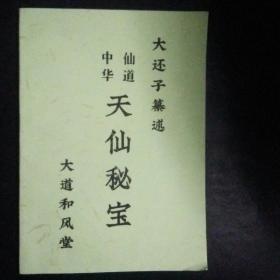 大还子纂述
中华仙道
天仙秘宝
大道和风堂